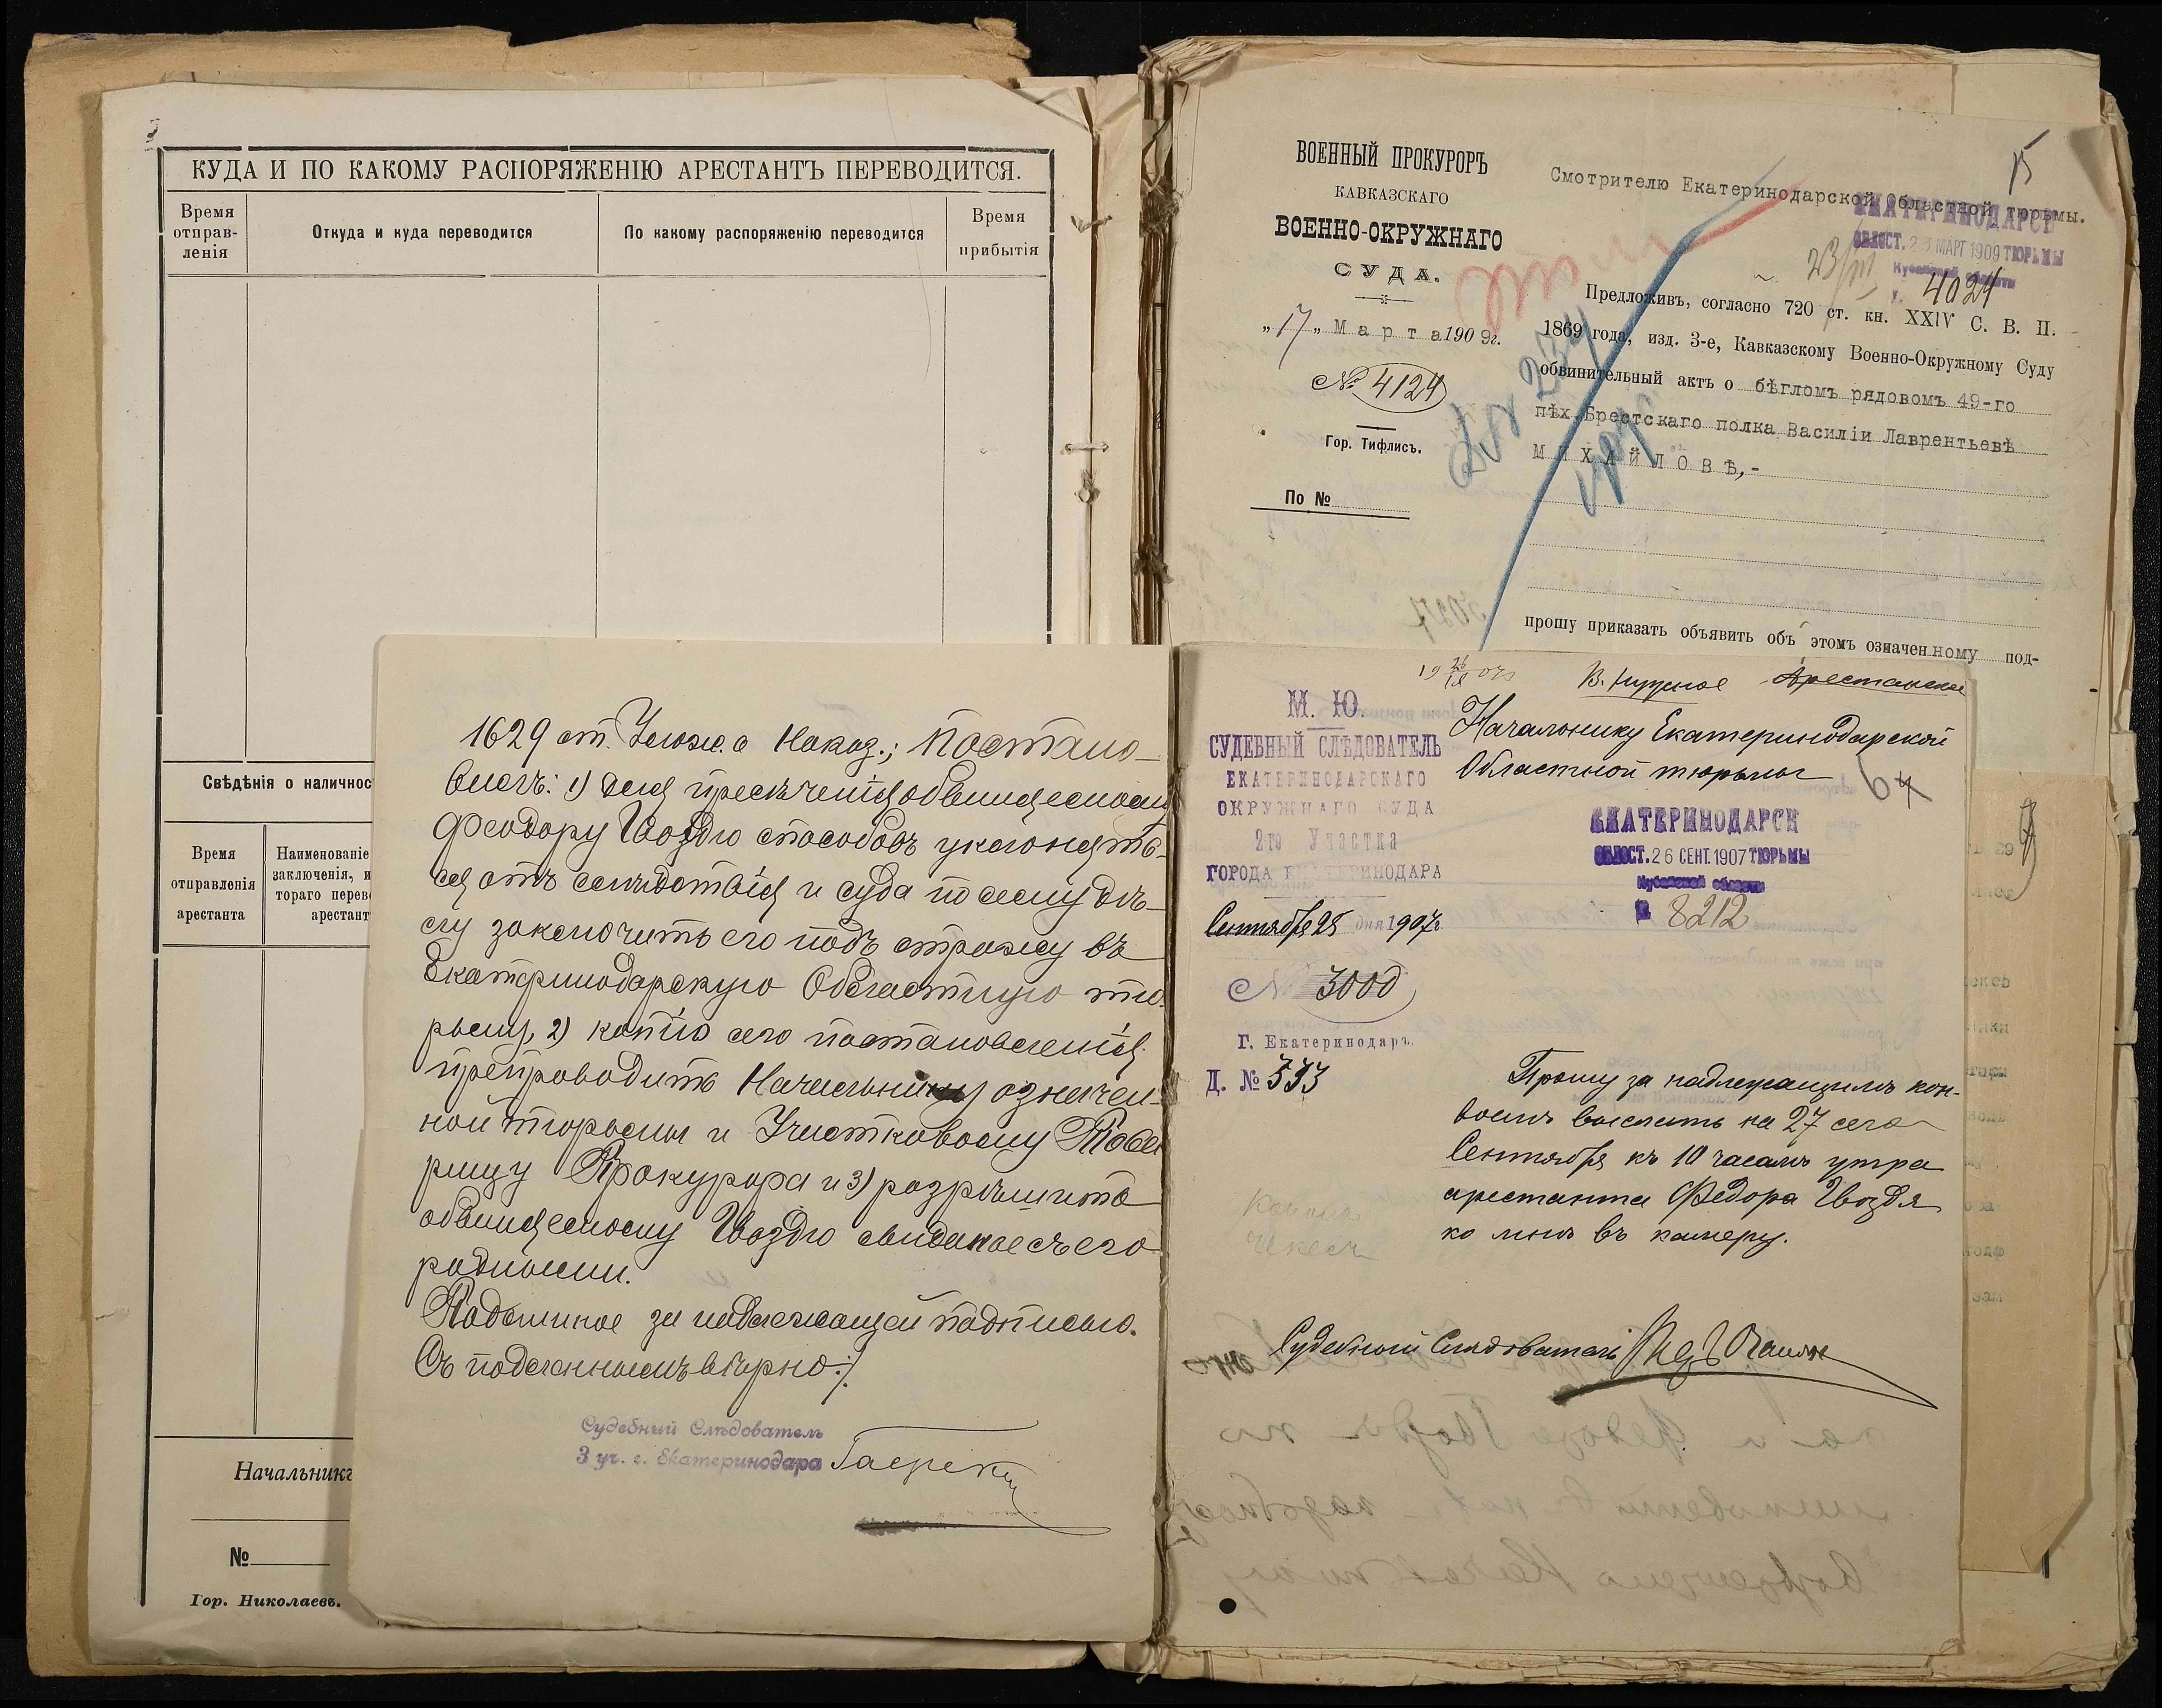 КУДА И ПО КАКОМУ РАСПОРЯЖЕНІЮ АРЕСТАНТЪ ПЕРЕВОДИТСЯ.
Время отправ- ленія
Откуда и куда переводится
По какому распоряженію переводится
Время прибытія
Свѣдѣнія о наличнос
Время отправленія арестанта
Наименованіе заключенія, и тораго перев арестант
Начальникъ
№
Гор. Николаевъ.
1629 ст. Улож. о Наказ.; Постано-
вилъ: 1) для пресѣченія обвиняемому
Феодору Гвоздю способовъ уклонять-
ся отъ слѣдствія и суда по сему дѣ-
лу заключить его подъ стражу въ
Екатеринодарскую Областную тю-
рьму, 2) копію сего постановленія
препроводить Начальнику означен-
ной тюрьмы и Участковому Това
рищу Прокурора и 3) разрѣшить
обвиняемому Гвоздю свиданіе съ его
родными.
Подлинное за надлежащей подписью.
Съ подлиннымъ вѣрно:
Судебный Слѣдователь
3 уч. г. Екатеринодара
ВОЕННЫЙ ПРОКУРОРЪ
КАВКАЗСКАГО
ВОЕННО-ОКРУЖНАГО
СУДА.
„17„ Марта 1909г.
№ 4124
Гор. Тифлисъ.
По №
15
Смотрителю Екатеринодарской Областной тюрьмы.
ЕКАТЕРИНОДАРСК
ОБЛОСТ. 23 МАРТ 1909 ТЮРЬМЫ
Кубанской области
23/III 4024
Предложивъ, согласно 720 ст. кн. XXIV С. В. П.
1869 года, изд. 3-е, Кавказскому Военно-Окружному Суду
обвинительный актъ о бѣгломъ рядовомъ 49-го
пѣх. Брестскаго полка Василіи Лаврентьевѣ
МИХАЙЛОВѢ,-
прошу приказать объявить объ этомъ означенному под-
М. Ю.
СУДЕБНЫЙ СЛѢДОВАТЕЛЬ
ЕКАТЕРИНОДАРСКАГО
ОКРУЖНАГО СУДА
2го Участка
ГОРОДА ЕКАТЕРИНОДАРА
Сентября 25 дня 1907г.
№ 3000
г. Екатеринодаръ.
Д. № 533
Арестанское
Начальнику Екатеринодарской
Областной тюрьмы
ЕКАТЕРИНОДАРСК
ОБЛОСТ. 26 СЕНТ. 1907 ТЮРЬМЫ
Кубанской области
№ 8212
Прошу за надлежащимъ кон-
воемъ выслать на 27 сего
Сентября къ 10 часамъ утра
арестанта Федора Гвоздя
ко мнѣ въ камеру.
Судебный Слѣдователь